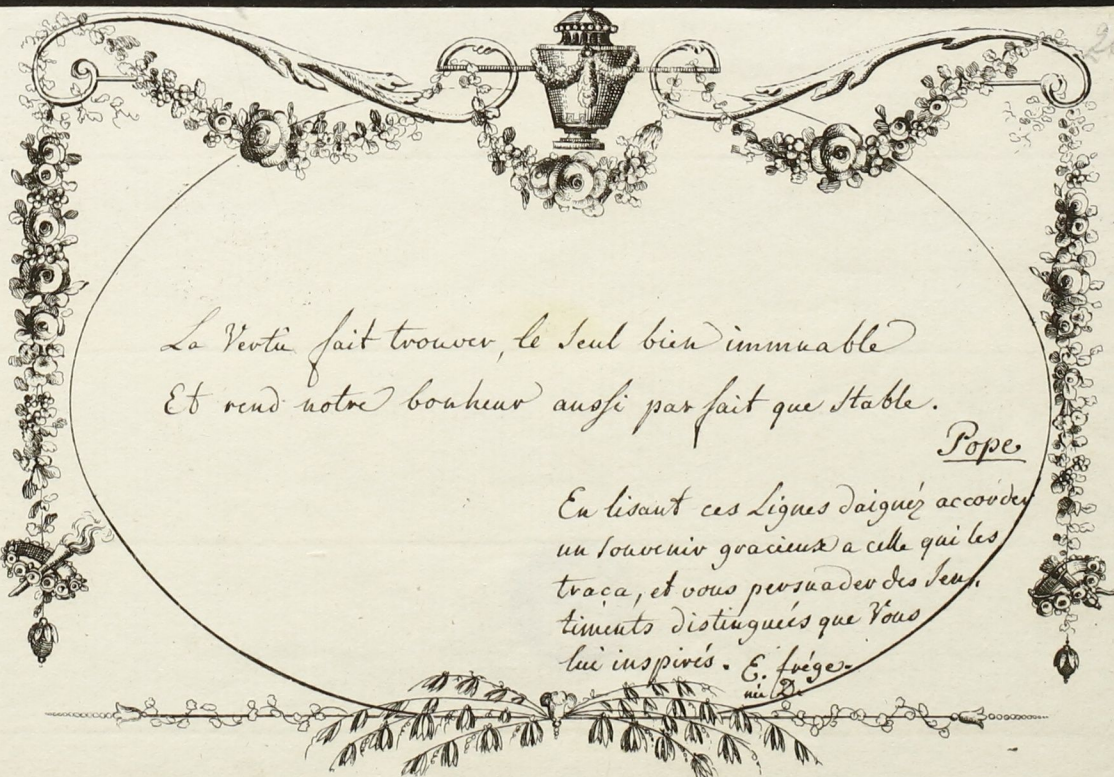 La Vertû fait trouver, le seul bien immuable
Et rend notre bonheur aussi parfait que stable.
Pope
En lisant ces Lignes daignéz accorder
un souvenir gracieux a celle qui les
traça, et vous persuader des sen-
timents distinguéés que Vous
lui inspirés. E. frége.
née D.